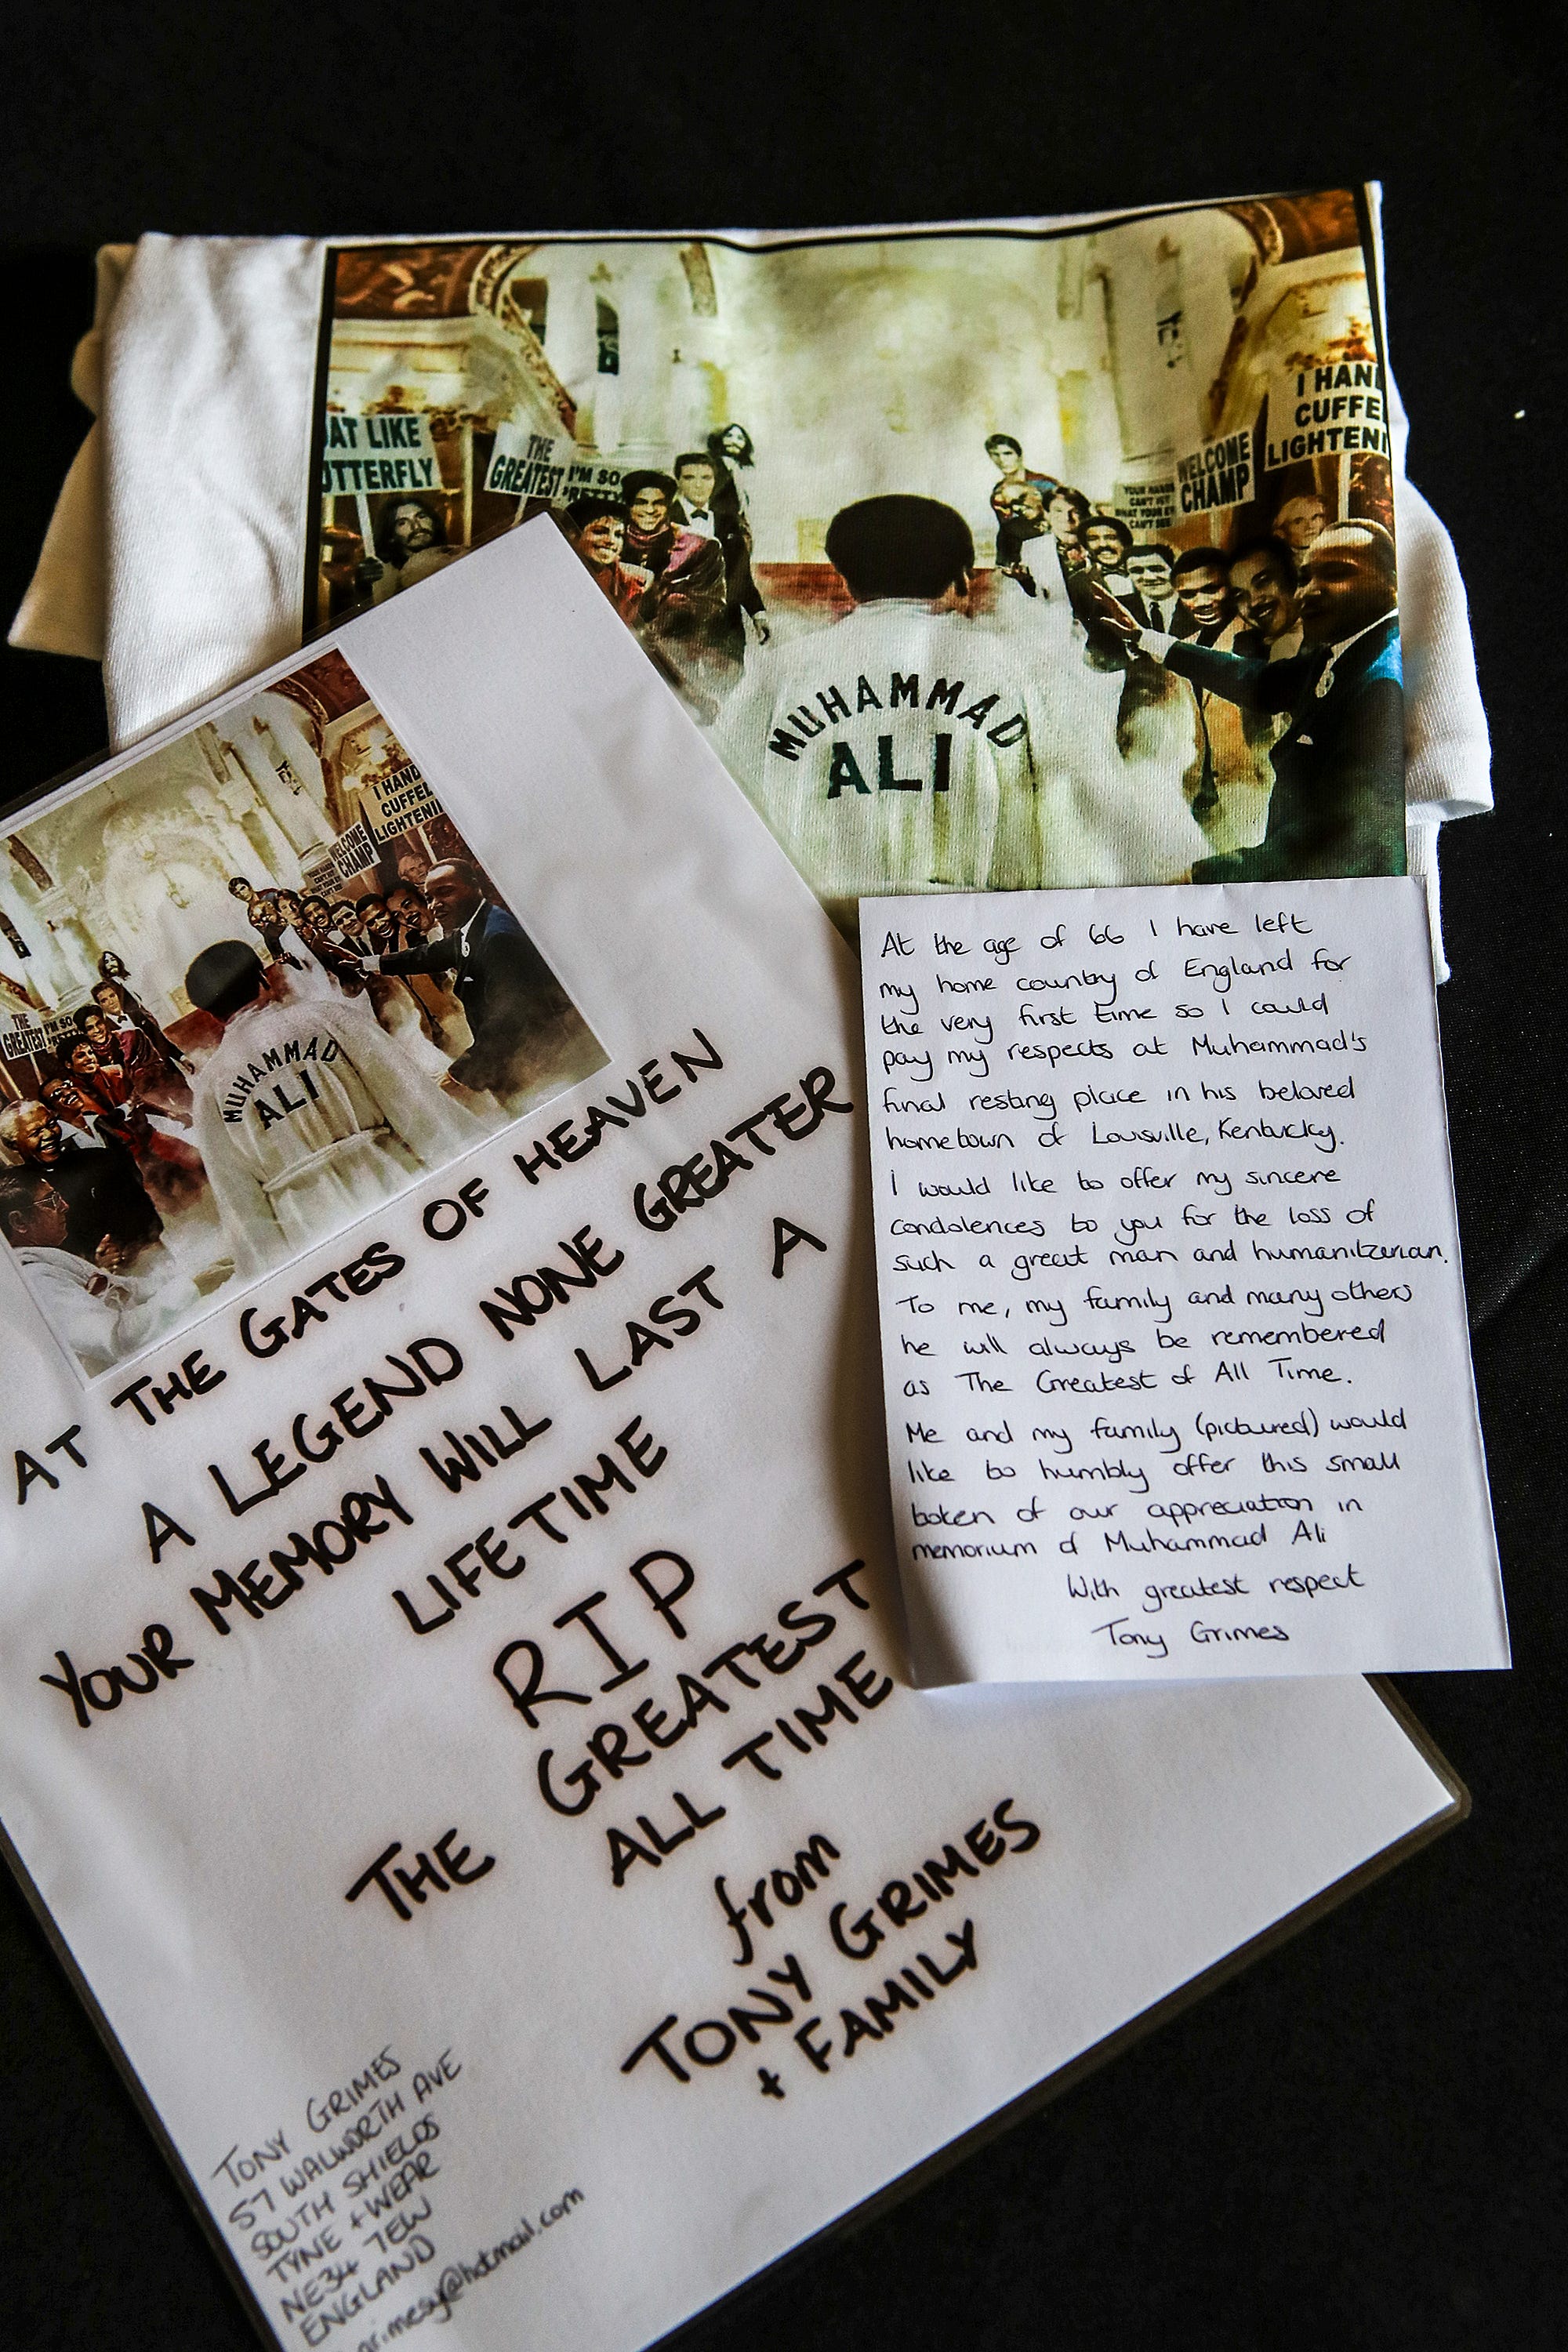 OAT LIKE
UTTERFLY
THE
GREATEST
I'M SO
PRETTY
YOUR HANDS
CAN'T HIT
WHAT YOUR EY
CAN'T SEE
WELCOME
CHAMP
I HAND
CUFFE
LIGHTENI
MUHAMMAD
ALI
THE
GREATEST
I'M SO
WELCOME
CHAMP
I HAND
CUFFEL
LIGHTENIN
MUHAMMAD
ALI
AT THE GATES OF HEAVEN
A LEGEND NONE GREATER
YOUR MEMORY WILL LAST A
LIFETIME
RIP
THE GREATEST
ALL TIME
from
TONY GRIMES
+ FAMILY
TONY GRIMES
57 WALWORTH AVE
SOUTH SHIELDS
TYNE + WEAR
NE34 7EW
ENGLAND
gr.mesy@hotmail.com
At the age of 66 I have left
my home country of England for
the very first time so I could
pay my respects at Muhammad's
final resting place in his beloved
hometown of Louisville, Kentucky.
I would like to offer my sincere
condolences to you for the loss of
such a great man and humanitzerian.
To me, my family and many others
he will always be remembered
as The Greatest of All Time.
Me and my family (pictured) would
like to humbly offer this small
token of our appreciation in
memorium of Muhammad Ali
With greatest respect
Tony Grimes